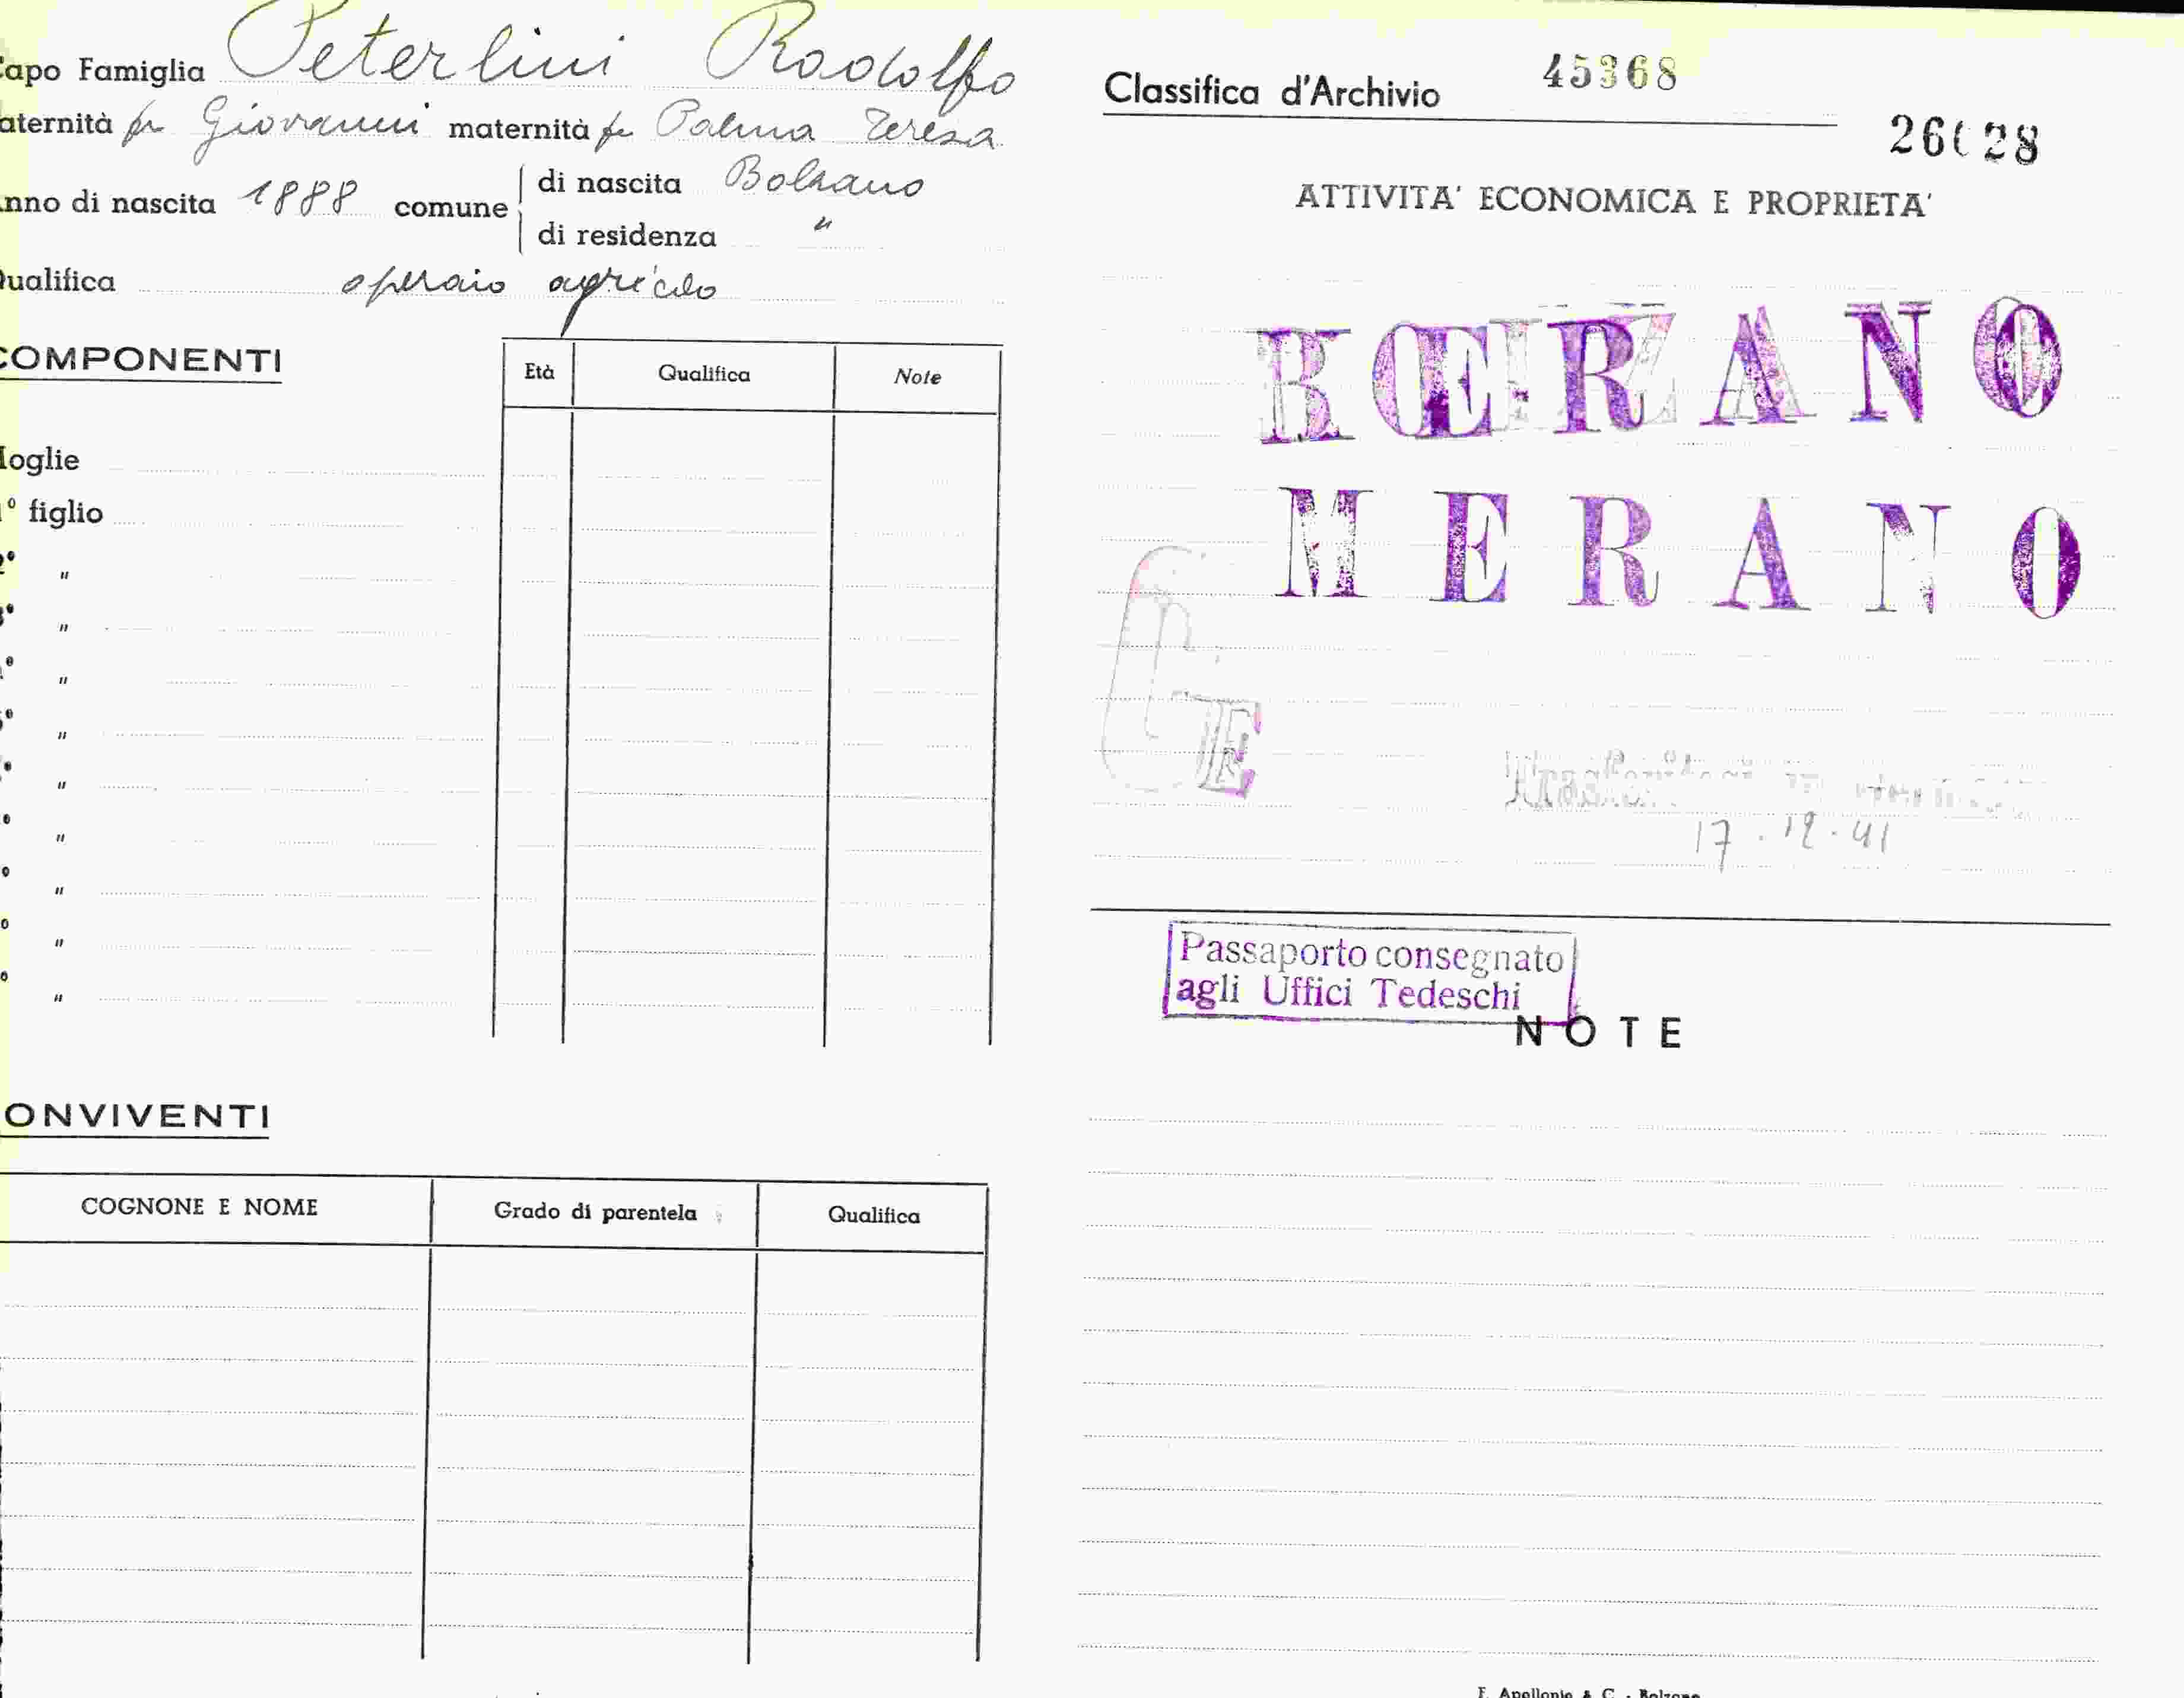 Capo Famiglia Peterlini Rodolfo
aternità fu Giovanni maternità fu Palma Teresa
nno di nascita 1888 comune di nascita Bolzano
di residenza "
ualifica operaio agricolo
COMPONENTI
Età Qualifica Note
oglie
1º figlio
2º "
3º "
º "
5º "
º "
º "
º "
º "
º "
ONVIVENTI
COGNONE E NOME Grado di parentela Qualifica
Classifica d'Archivio 45368
26028
ATTIVITA' ECONOMICA E PROPRIETA'
MERANO
MERANO
E
17.12.41
Passaporto consegnato
agli Uffici Tedeschi
NOTE
F. Apollonio & C. - Bolzano